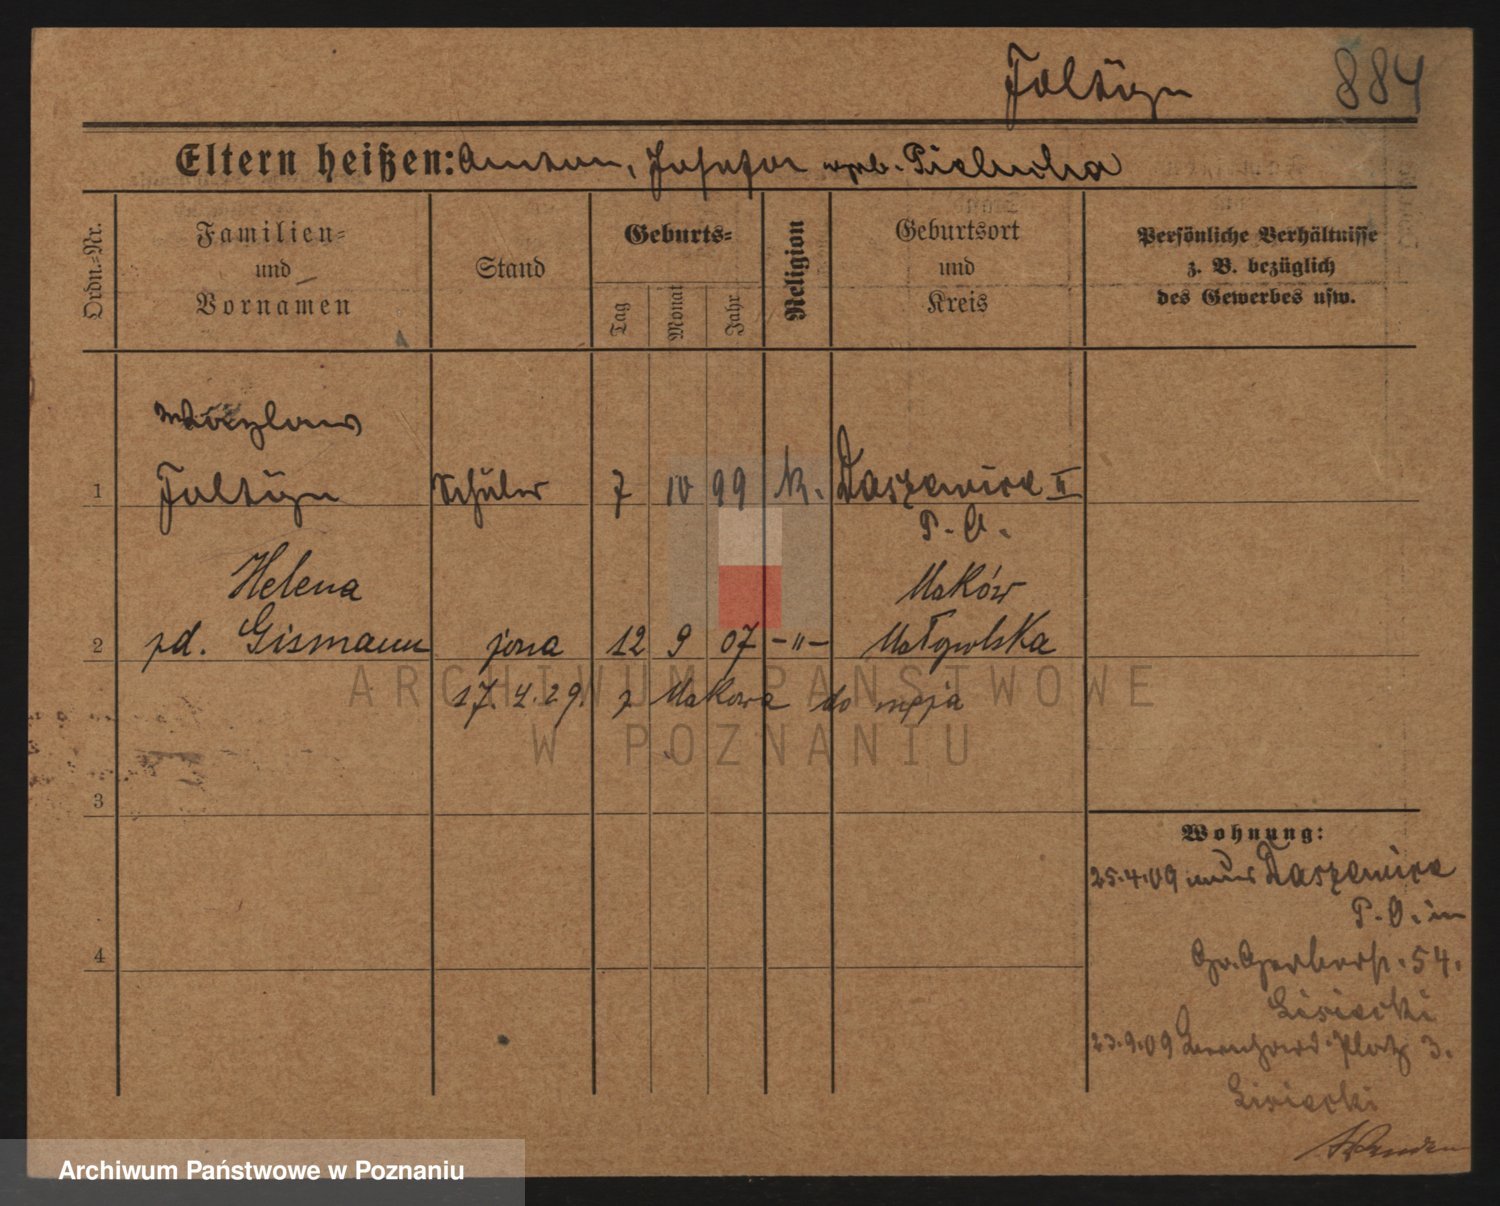 Foltyn 884
Eltern heißen: Anton, Josefa geb. Pielucha
Ordn.-Nr.
Familien-
und
Vornamen
Stand
Geburts-
Tag
Monat
Jahr
Religion
Geburtsort
und
Kreis
Persönliche Verhältnisse
z. B. bezüglich
des Gewerbes usw.
Woczlaw
1 Foltyn Schüler 7 10 99 k. Daszewice II
P. O.
Helena Maków
2 zd. Gismann żona 12 9 07 -"- Małopolska
17. 4. 29. z Makowa do męża
3
4
Wohnung:
25.4.09 von Daszewice
P. O. in
Gr. Gerberstr. 54.
Lisiecki
23.9.09 Bernhard. Platz 3.
Lisiecki
ARCHIWUM PAŃSTWOWE
W POZNANIU
Archiwum Państwowe w Poznaniu